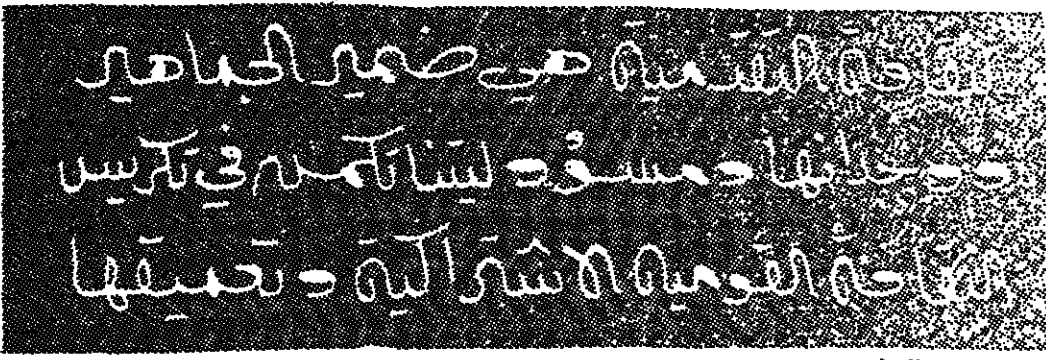 الثقافة التقدمية هي ضمير الجماهير
ووجدانها ومسؤوليتنا تكمن في تكريس
الثقافة القومية الاشتراكية وتعميقها